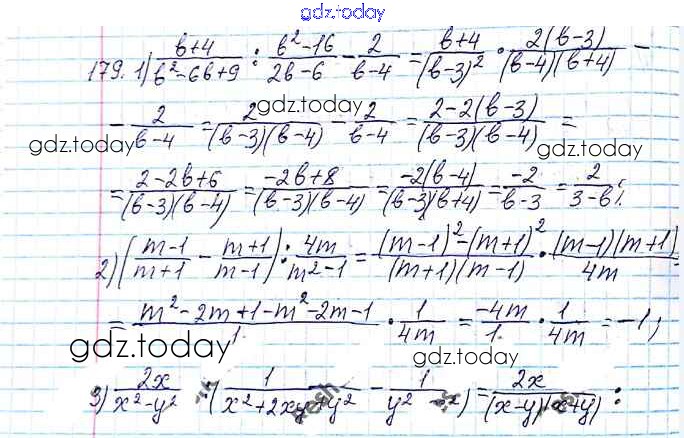 gdz.today
179. 1) (в+4)/(в²-6в+9) : (в²-16)/(2в-6) - 2/(в-4) = (в+4)/(в-3)² · 2(в-3)/((в-4)(в+4)) -
- 2/(в-4) = 2/((в-3)(в-4)) - 2/(в-4) = (2-2(в-3))/((в-3)(в-4)) =
gdz.today gdz.today gdz.today
= (2-2в+6)/((в-3)(в-4)) = (-2в+8)/((в-3)(в-4)) = -2(в-4)/((в-3)(в+4)) = -2/(в-3) = 2/(3-в);
2) ((m-1)/(m+1) - (m+1)/(m-1)) : 4m/(m²-1) = ((m-1)²-(m+1)²)/((m+1)(m-1)) · (m-1)(m+1)/4m =
= (m²-2m+1-m²-2m-1)/1 · 1/4m = -4m/1 · 1/4m = -1;
gdz.today gdz.today
3) 2x/(x²-y²) : (1/(x²+2xy+y²) - 1/(y² - x²)) = 2x/((x-y)(x+y)) :